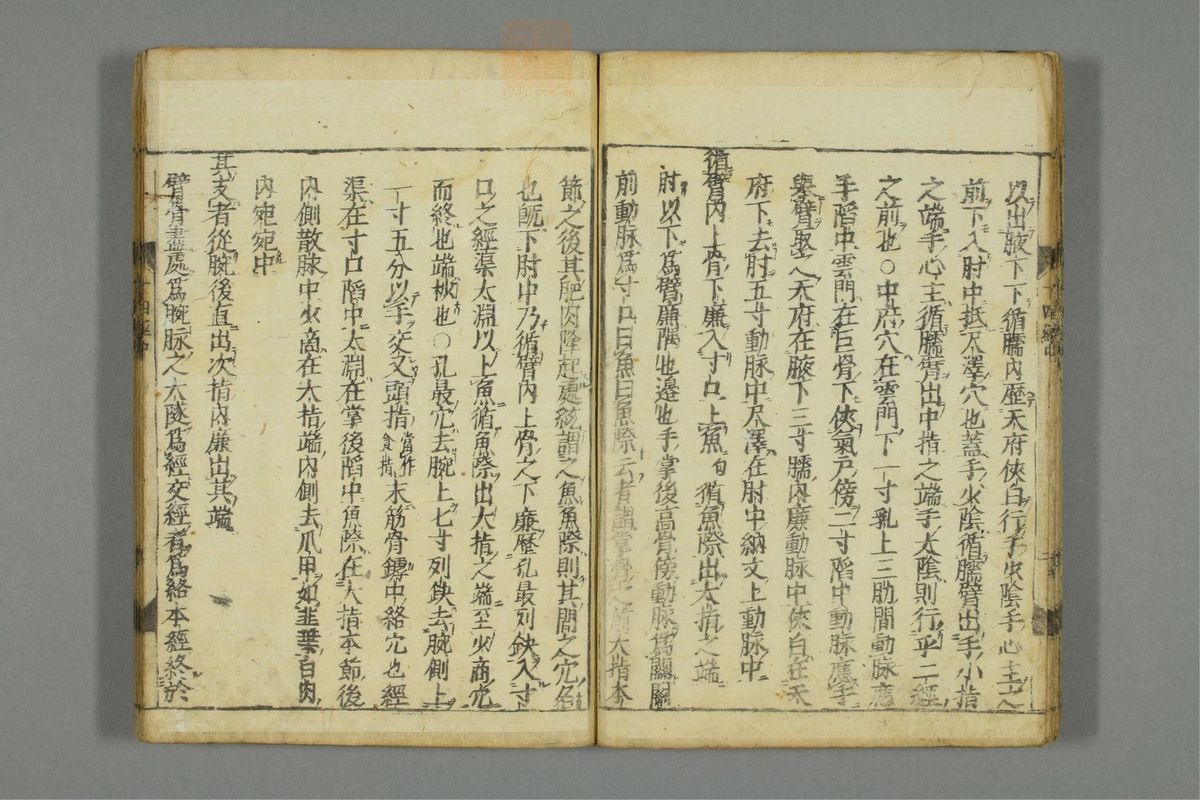 以出腋下下循臑內歷天府俠白行手少陰手心主之
前下入肘中抵尺澤穴也蓋手少陰循臑臂出手小指
之端手心主循臑臂出中指之端手太陰則行乎二經
之前也○中府穴在雲門下一寸乳上三肋間動脉應
手陷中雲門在巨骨下俠氣戶傍二寸陷中動脉應手
舉臂取之天府在腋下三寸臑內廉動脉中俠白在天
府下去肘五寸動脉中尺澤在肘中約文上動脉中
循臂內上骨下廉入寸口上魚句循魚際出大指之端
肘以下為臂廉隅也邊也手掌後高骨傍動脉為關關
前動脉為寸口曰魚曰魚際云者謂掌骨之前大指本
節之後其肥肉隆起處統謂之魚魚際則其間之穴名
也既下肘中乃循臂內上骨之下廉歷孔最列缺入寸
口之經渠太淵以上魚循魚際出大指之端至少商穴
而終也端杪也○孔最穴去腕上七寸列缺去腕側上
一寸五分以手交叉頭指當作食指末筋骨鏬中絡穴也經
渠在寸口陷中太淵在掌後陷中魚際在大指本節後
內側散脉中少商在大指端內側去爪甲如韭葉白肉
內宛宛中
其支者從腕後直出次指內廉出其端
臂骨盡處為腕脉之大隧為經交經者為絡本經終於